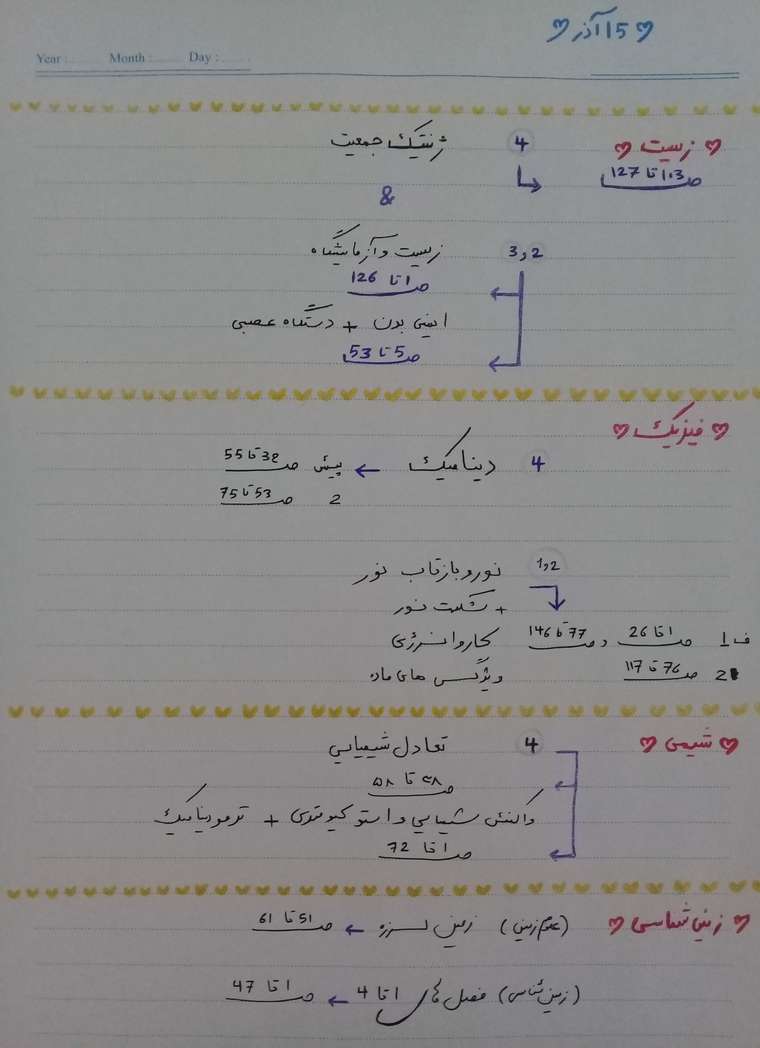 15 آذر
Year : Month : Day :
زیست 4 ژنتیک جمعیت
ص 103 تا 127
&
2 و 3 زیست و آزمایشگاه
ص 1 تا 126
ایمنی بدن + دستگاه عصبی
ص 5 تا 53
فیزیک
4 دینامیک ← پیش ص 32 تا 55
2 ص 53 تا 75
1,2 نور و بازتاب نور
+ شکست نور
ف 1 ص 1 تا 26 و ص 77 تا 146 کار و انرژی
2 ص 76 تا 117 ویژگی های ماده
شیمی 4 تعادل شیمیایی
ص ۲۸ تا ۵۸
واکنش شیمیایی و استوکیومتری + ترمودینامیک
ص 1 تا 72
زمین شناسی (علوم زمین) زمین لرزه ← ص 51 تا 61
(زمین شناسی) فصل های 1 تا 4 ← ص 1 تا 47